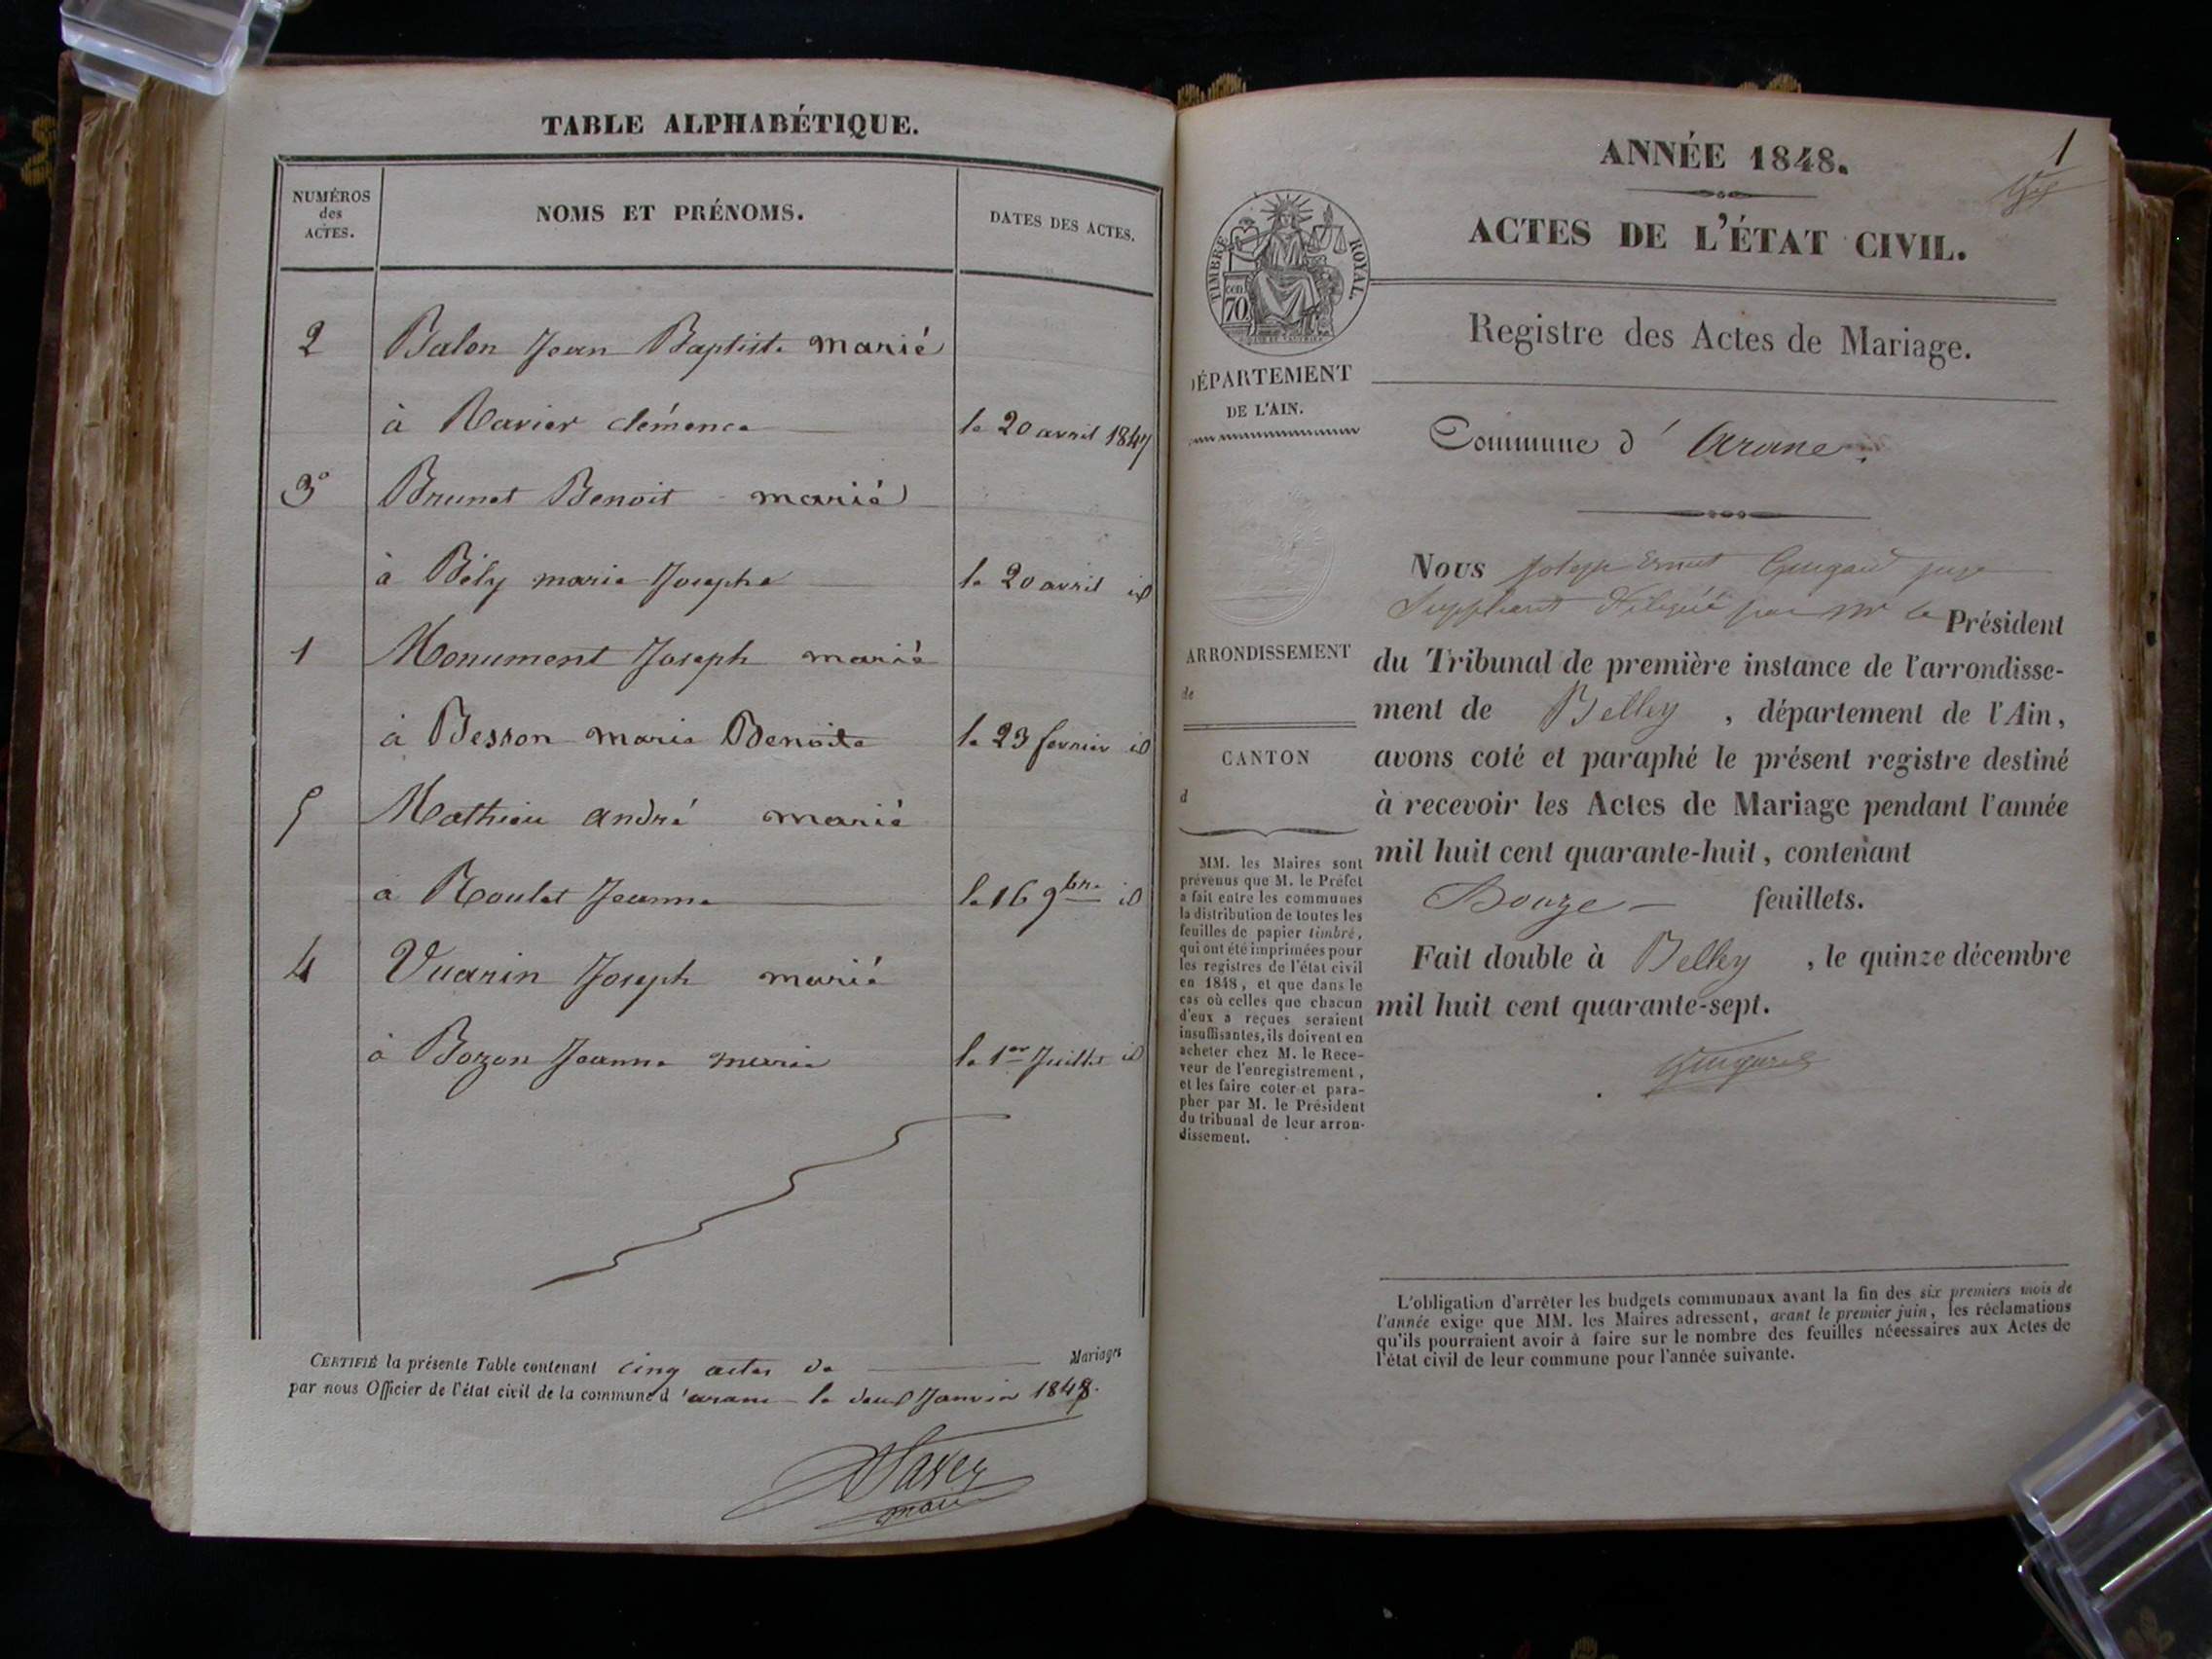 TABLE ALPHABÉTIQUE.
NUMÉROS
des
ACTES.
NOMS ET PRÉNOMS.
DATES DES ACTES.
2 Balon Jean Baptiste marié
à Ravier clémence le 20 avril 1847
3° Brunet Benoit marié
à Bély marie Josephe le 20 avril id
1 Monument Joseph marié
à Besson marie Benoite le 23 fevrier id
5 Mathieu andré marié
à Roulet Jeanne le 16 9bre id
4 Vuarin Joseph marié
à Bozon Jeanne marie le 1er Juillet id
CERTIFIÉ la présente Table contenant cinq actes de Mariages
par nous Officier de l'état civil de la commune d'arane le deux Janvier 1848.
maire
1
ANNÉE 1848.
ACTES DE L'ÉTAT CIVIL.
TIMBRE ROYAL.
cen.
70
DÉPARTEMENT
DE L'AIN.
Registre des Actes de Mariage.
Commune d'Arane.
ARRONDISSEMENT
de
CANTON
d
MM. les Maires sont
prévenus que M. le Préfet
a fait entre les communes
la distribution de toutes les
feuilles de papier timbré,
qui ont été imprimées pour
les registres de l'état civil
en 1848, et que dans le
cas où celles que chacun
d'eux a reçues seraient
insuffisantes, ils doivent en
acheter chez M. le Rece-
veur de l'enregistrement,
et les faire coter et para-
pher par M. le Président
du tribunal de leur arron-
dissement.
Nous Joseph Ernest juge
Suppléant délégué par Mr le Président
du Tribunal de première instance de l'arrondisse-
ment de Belley, département de l'Ain,
avons coté et paraphé le présent registre destiné
à recevoir les Actes de Mariage pendant l'année
mil huit cent quarante-huit, contenant
Douze feuillets.
Fait double à Belley, le quinze décembre
mil huit cent quarante-sept.
L'obligation d'arrêter les budgets communaux avant la fin des six premiers mois de
l'année exige que MM. les Maires adressent, avant le premier juin, les réclamations
qu'ils pourraient avoir à faire sur le nombre des feuilles nécessaires aux Actes de
l'état civil de leur commune pour l'année suivante.